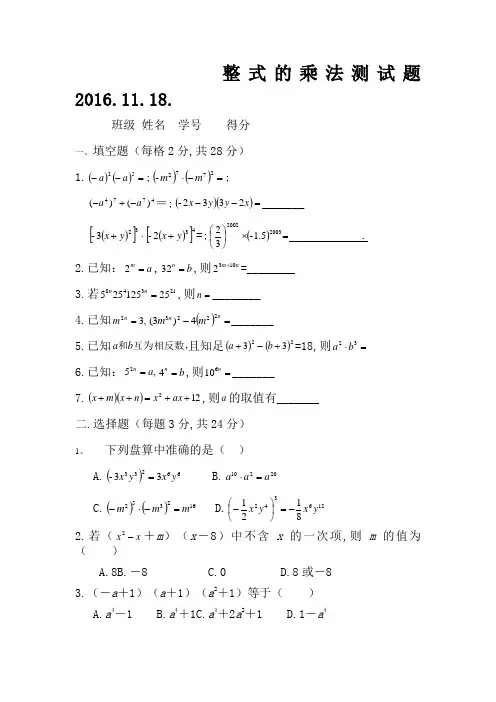 整式的乘法测试题
2016.11.18.
班级 姓名 学号 得分
一、填空题（每格2分,共28分）
1.(-a)²(-a)⁵=;(-m²)⁷·(-m⁷)²=;
(-a⁴)⁷+(-a⁷)⁴=;(-2x-3y)(3y-2x)=_______
[-3(x+y)²]³·[-2(x+y)³]⁴=;(2/3)²⁰⁰²×(-1.5)²⁰⁰³=__________.
2.已知: 2ᵐ=a,32ⁿ=b,则2³ᵐ⁺¹⁰ⁿ=________
3.若5⁸ⁿ25⁴ⁿ125³ⁿ=25²¹,则n=________
4.已知m²ⁿ=3,(3m³ⁿ)²-4(m²)²ⁿ=_______
5.已知a和b互为相反数,且知足(a+3)²-(b+3)²=18,则a²·b³=
6.已知: 5²ⁿ=a,4ⁿ=b,则10⁶ⁿ=_______
7.(x+m)(x+n)=x²+ax+12,则a的取值有_______
二.选择题（每题3分,共24分）
1、 下列盘算中准确的是（ ）
A.(-3x³y³)²=3x⁶y⁶ B.a¹⁰·a²=a²⁰
C.(-m²)⁵·(-m³)²=m¹⁶ D.(-1/2x²y⁴)³=-1/8x⁶y¹²
2.若（x²-x+m）（x-8）中不含x的一次项,则m的值为（ ）
A.8B.-8 C.0 D.8或-8
3.（-a+1）（a+1）（a²+1）等于（ ）
A.a⁴-1 B.a⁴+1C.a⁴+2a²+1 D.1-a⁴